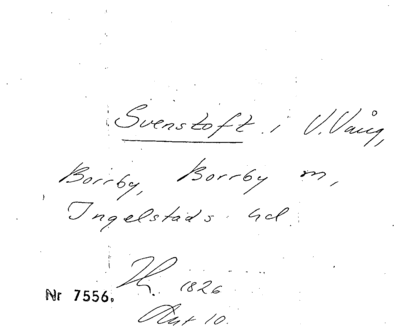 Svenstoft i V. Vång,
Borrby, Borrby sn,
Ingelstads hd.
1826
Nr 7556.
Akt 10.